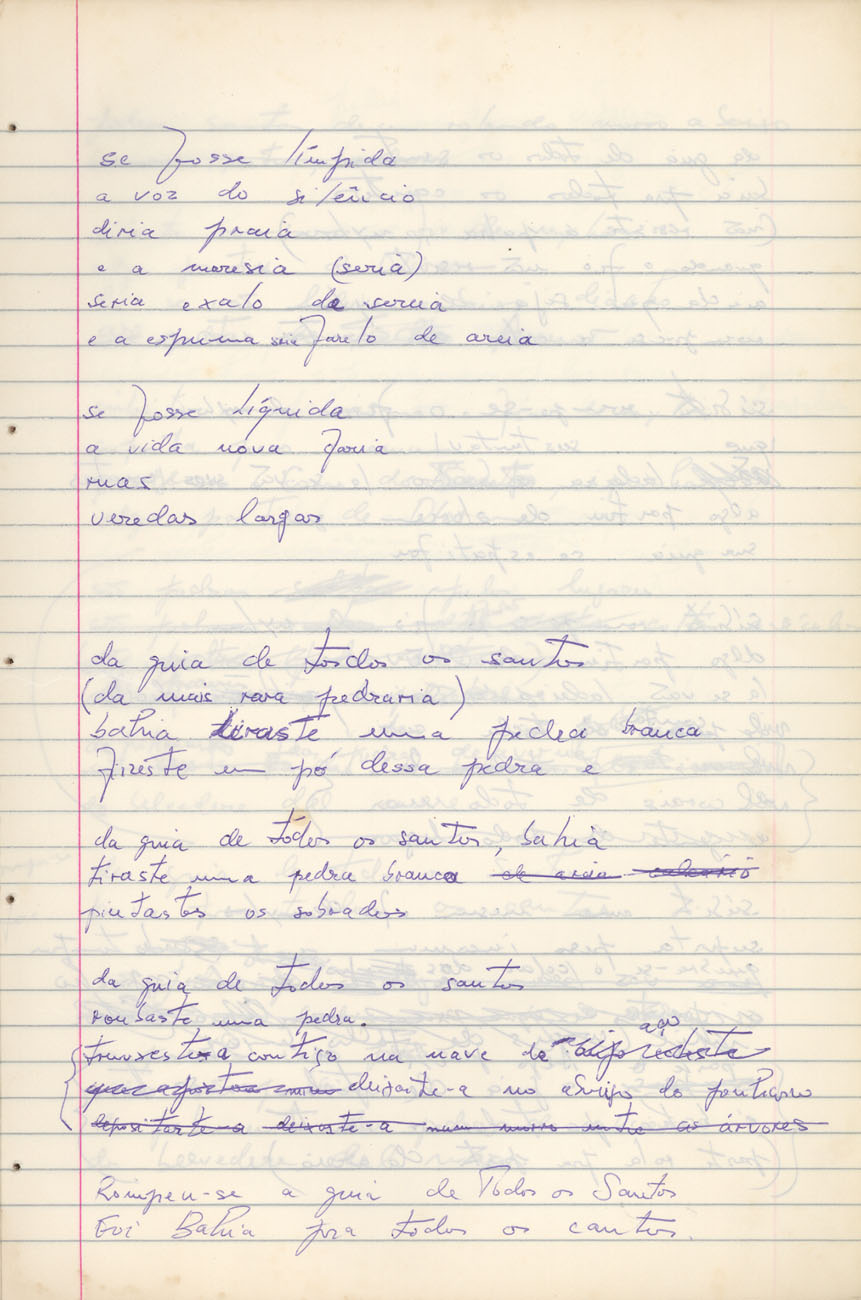 se fosse límpida
a voz do silêncio
diria praia
e a maresia (seria)
seria exalo de sereia
e a espuma seria farelo de areia
se fosse líquida
a vida nova faria
ruas
veredas largas
da guia de todos os santos
(da mais rara pedraria)
bahia tiraste uma pedra branca
fizeste um pó dessa pedra e
da guia de todos os santos, bahia
tiraste uma pedra branca de areia calcário
pintastes os sobrados
da guia de todos os santos
roubaste uma pedra.
aço
trouxeste-a contigo na nave de
deixaste-a no abrigo do
depositaste-a deixaste-a num morro entre as árvores
Rompeu-se a guia de Todos os Santos
Foi Bahia pra todos os cantos.